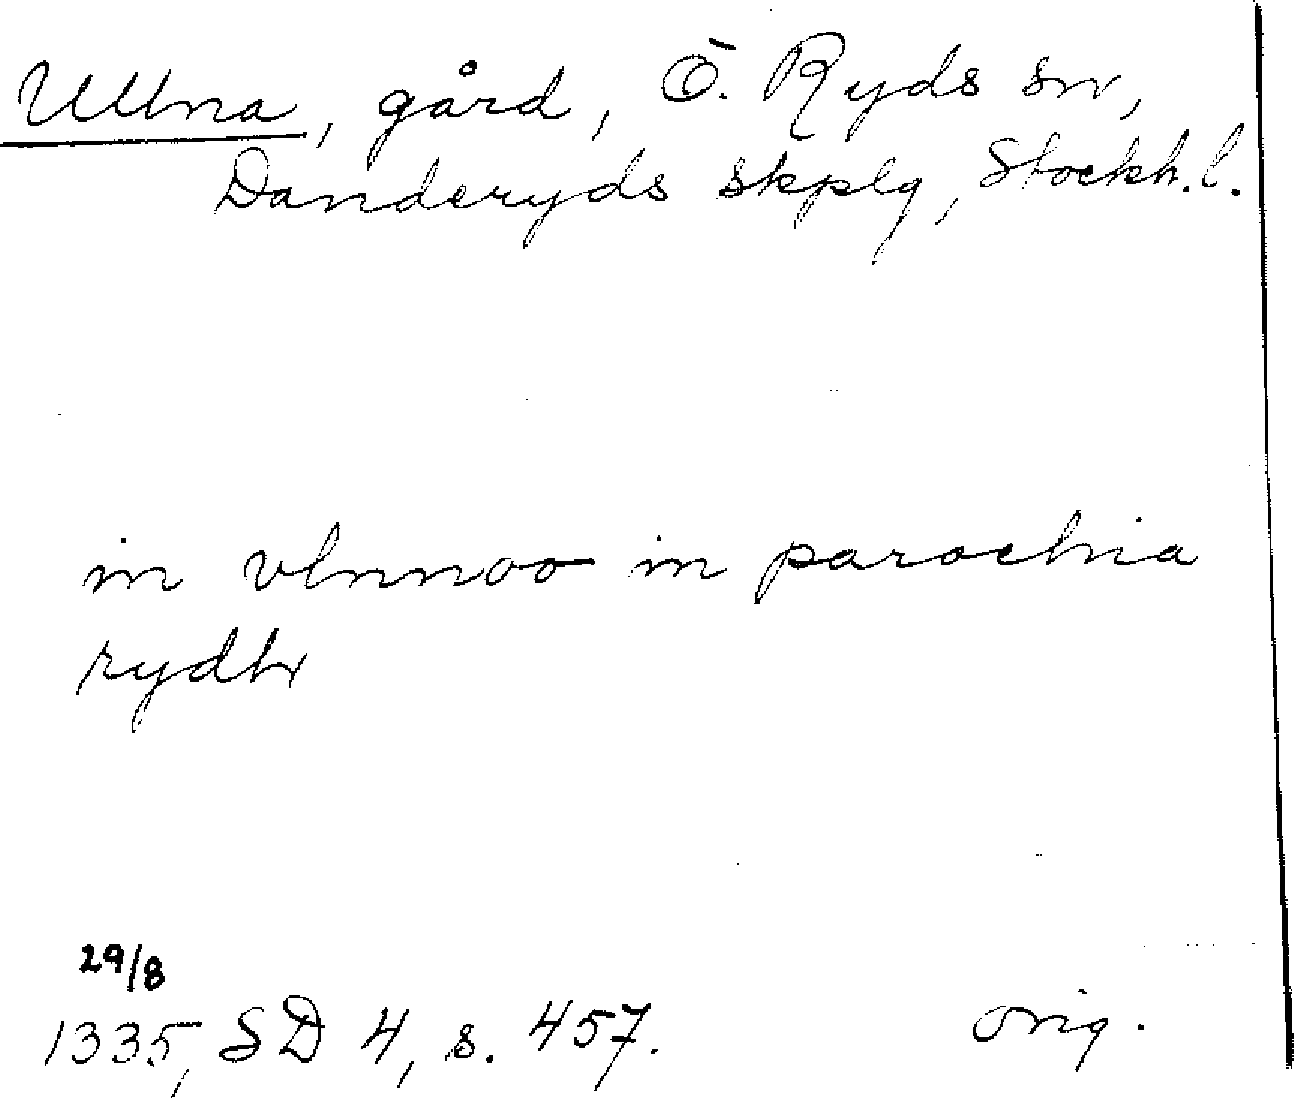 Ullna, gård, Ö. Ryds sn,
Danderyds skplg, Stockh. l.
in vlnnoo in parochia
rydh
29/8
1335, SD 4, s. 457.
orig.